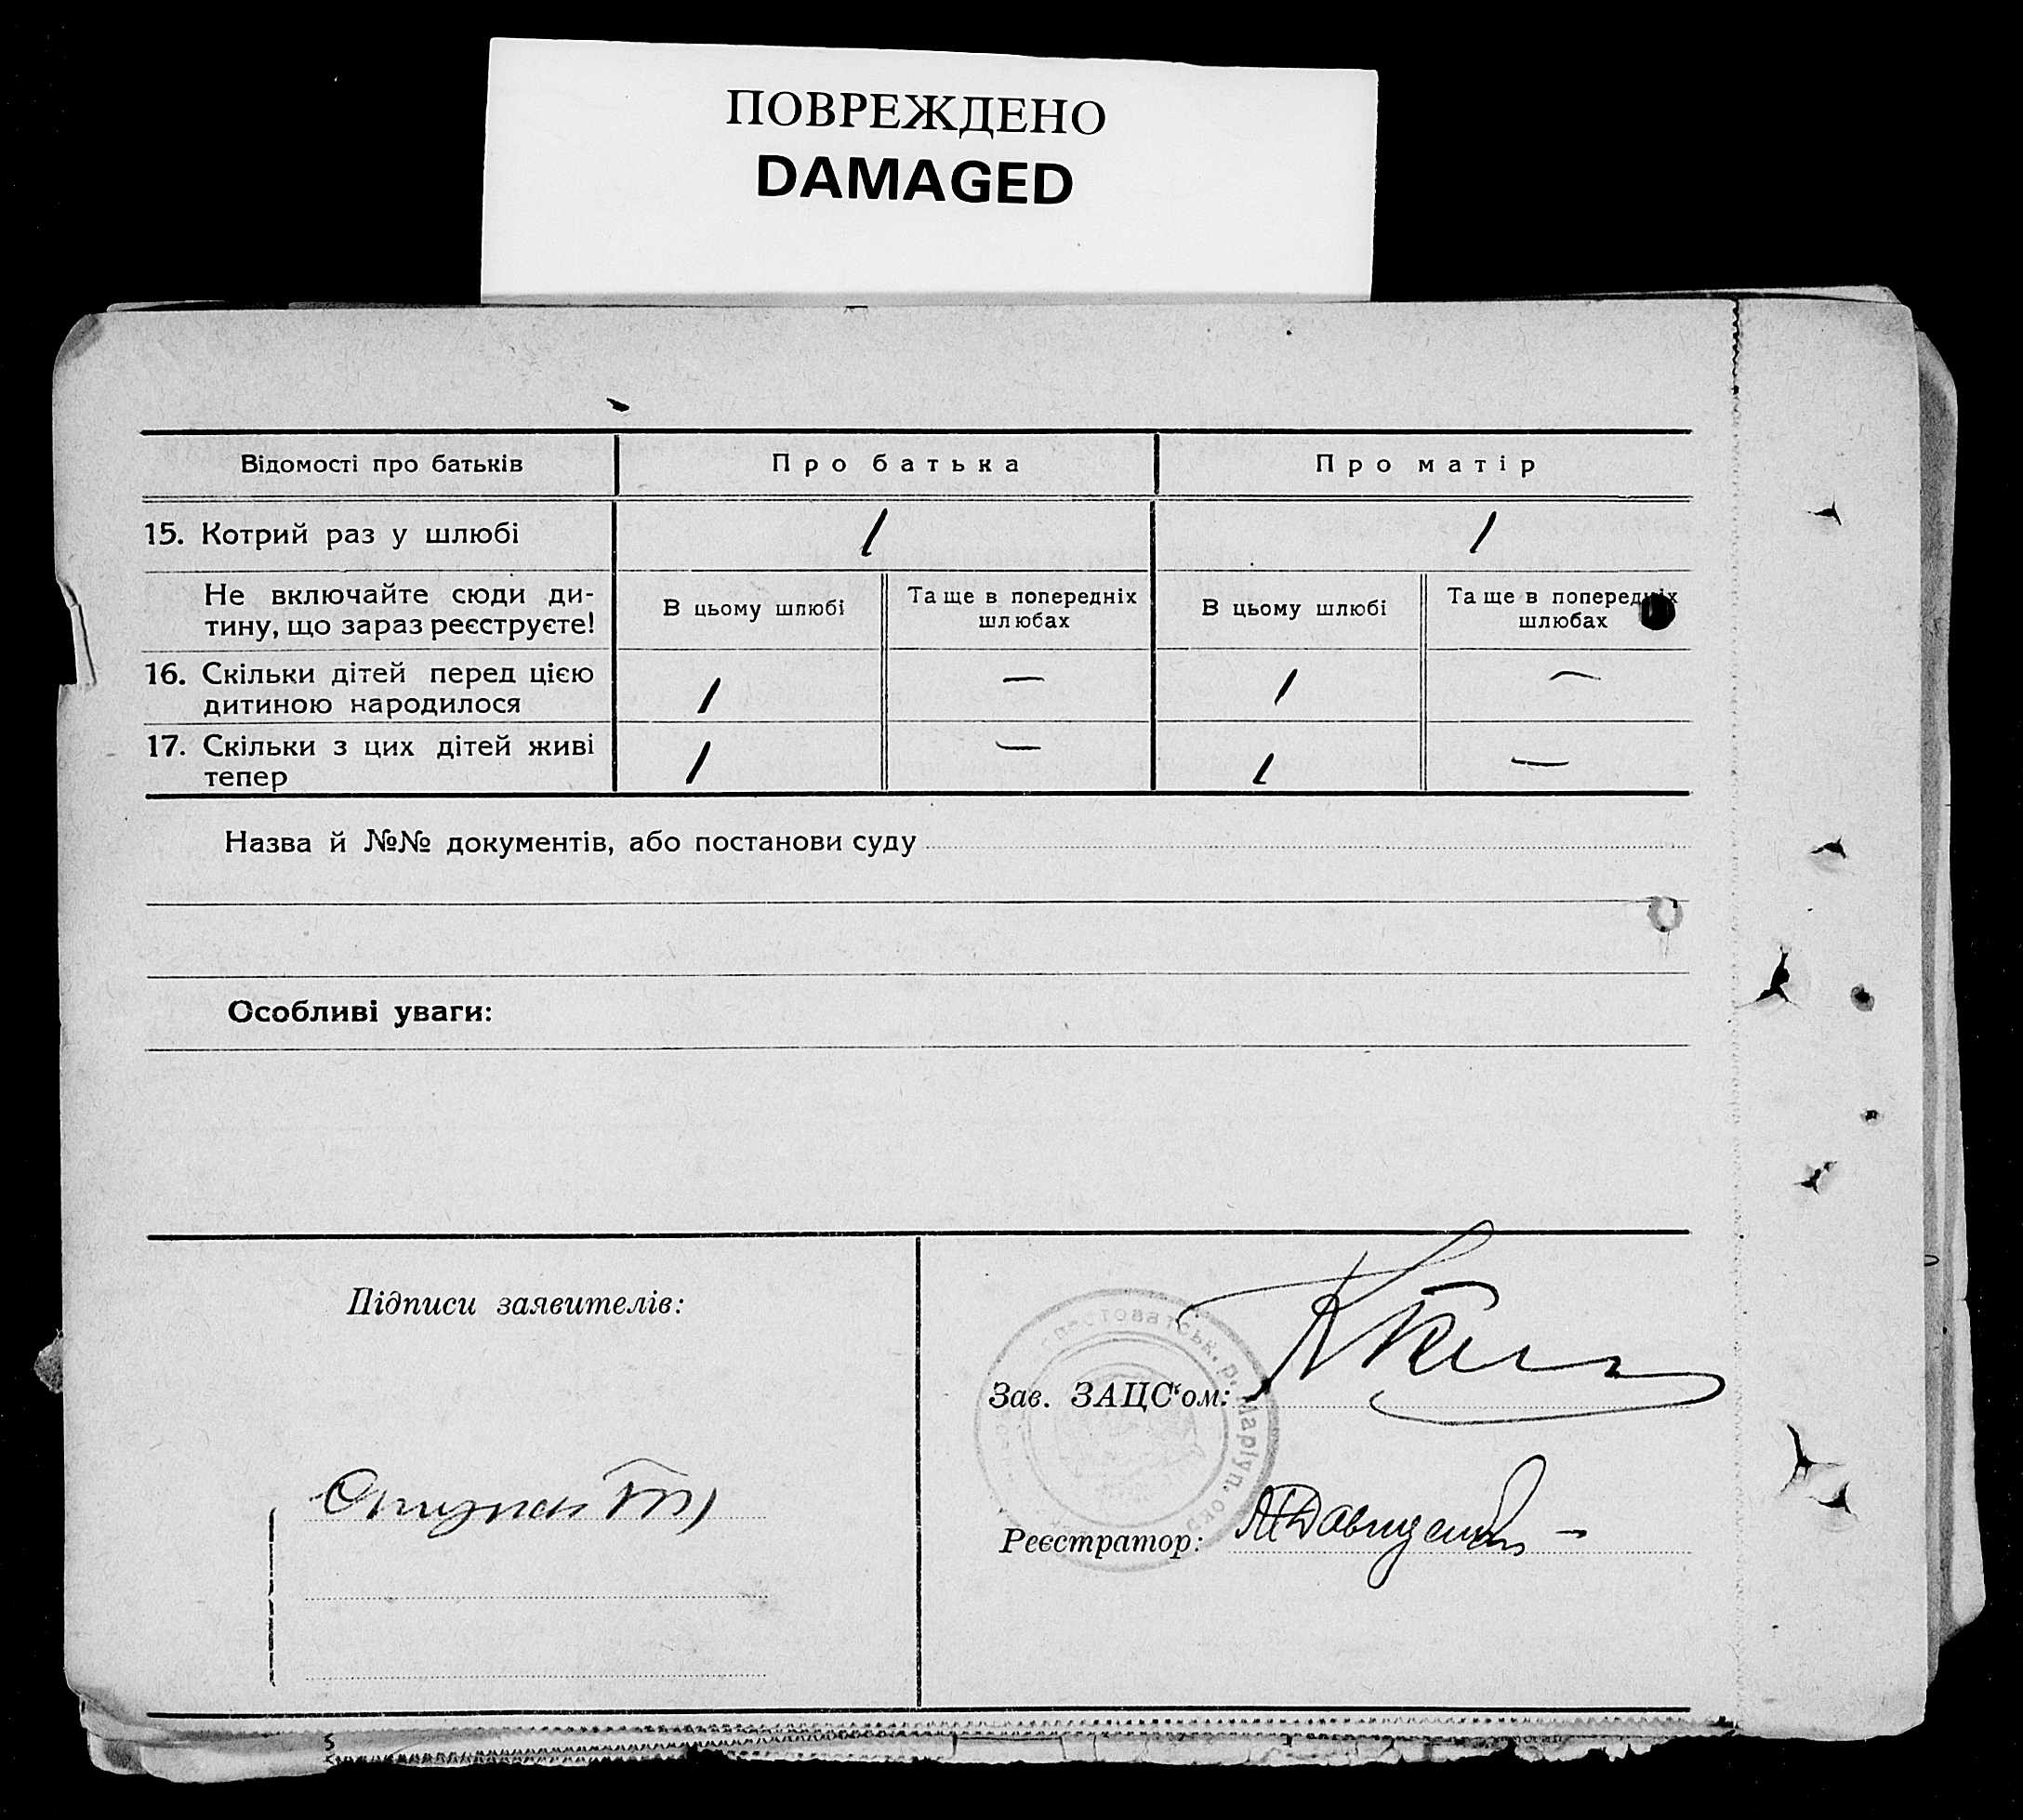 ПОВРЕЖДЕНО
DAMAGED
Відомості про батьків
Про батька
Про матір
15. Котрий раз у шлюбі
1
1
Не включайте сюди ди-
тину, що зараз реєструєте!
В цьому шлюбі
Та ще в попередніх
шлюбах
В цьому шлюбі
Та ще в попередніх
шлюбах
16. Скільки дітей перед цією
дитиною народилося
1
—
1
—
17. Скільки з цих дітей живі
тепер
1
—
1
—
Назва й №№ документів, або постанови суду
Особливі уваги:
Підписи заявителів:
Зав. ЗАЦС‘ом:
Реєстратор:
р. Маріуп. окр